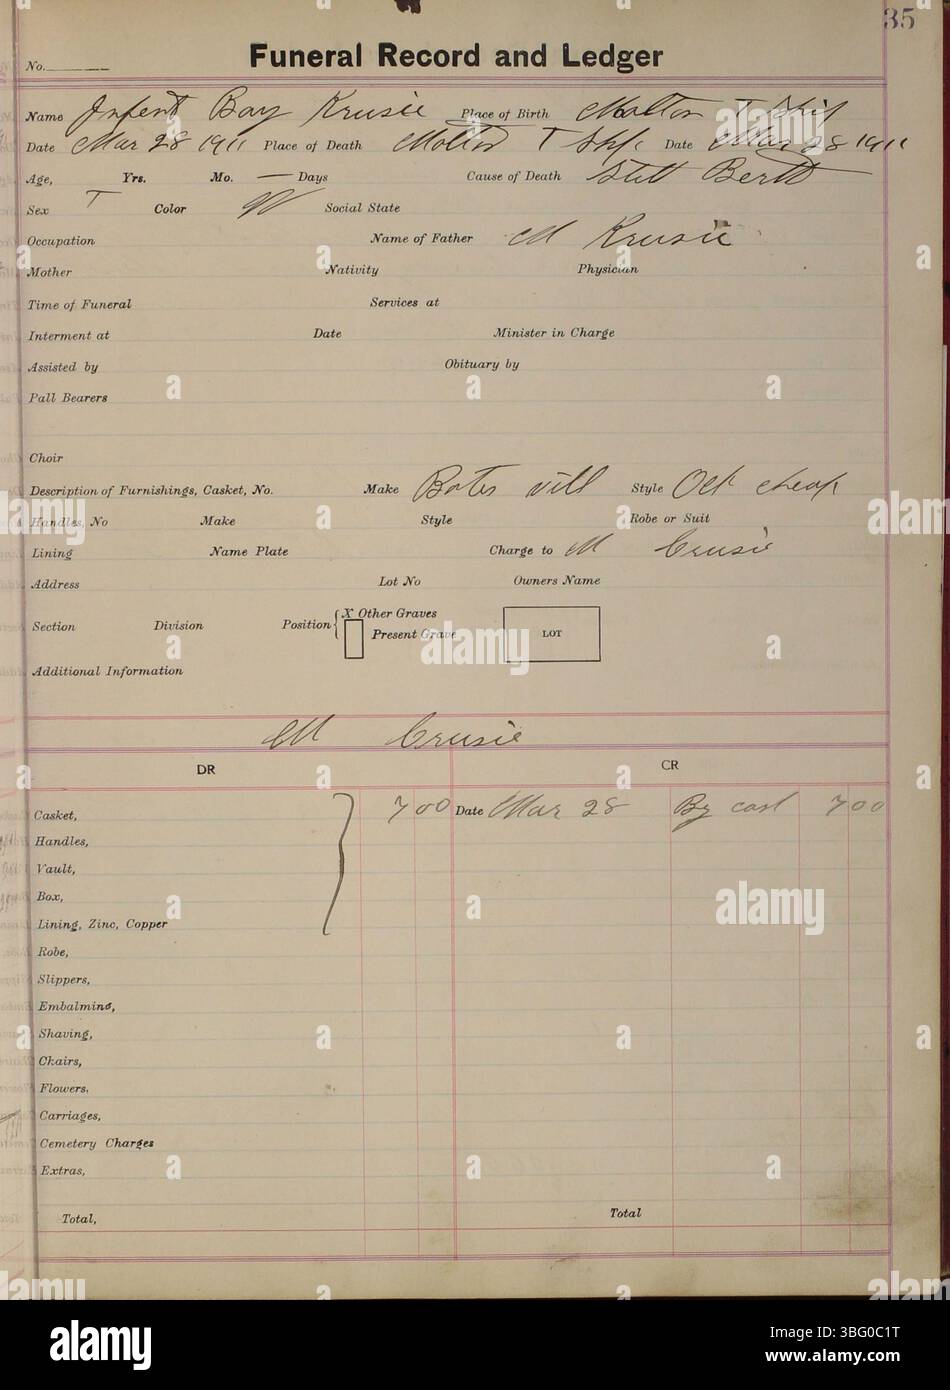 35
No.
Funeral Record and Ledger
Name Infent Boy Krusie Place of Birth Molton T Ship
Date Mar 28 1911 Place of Death Molton T Ship Date Mar 28 1911
Age, Yrs. Mo. — Days Cause of Death Still Berth
Sex Color W Social State
Occupation Name of Father M Krusie
Mother Nativity Physician
Time of Funeral Services at
Interment at Date Minister in Charge
Assisted by Obituary by
Pall Bearers
Choir
Description of Furnishings, Casket, No. Make Bates vill Style Oct cheap
Handles, No Make Style Robe or Suit
Lining Name Plate Charge to M Crusie
Address Lot No Owners Name
Section Division Position X Other Graves
Present Grave LOT
Additional Information
M Crusie
DR CR
Casket, 7 00 Date Mar 28 By cash 7 00
Handles,
Vault,
Box,
Lining, Zinc, Copper
Robe,
Slippers,
Embalming,
Shaving,
Chairs,
Flowers,
Carriages,
Cemetery Charges
Extras,
Total, Total
alamy
Image ID: 3BG0C1T
www.alamy.com